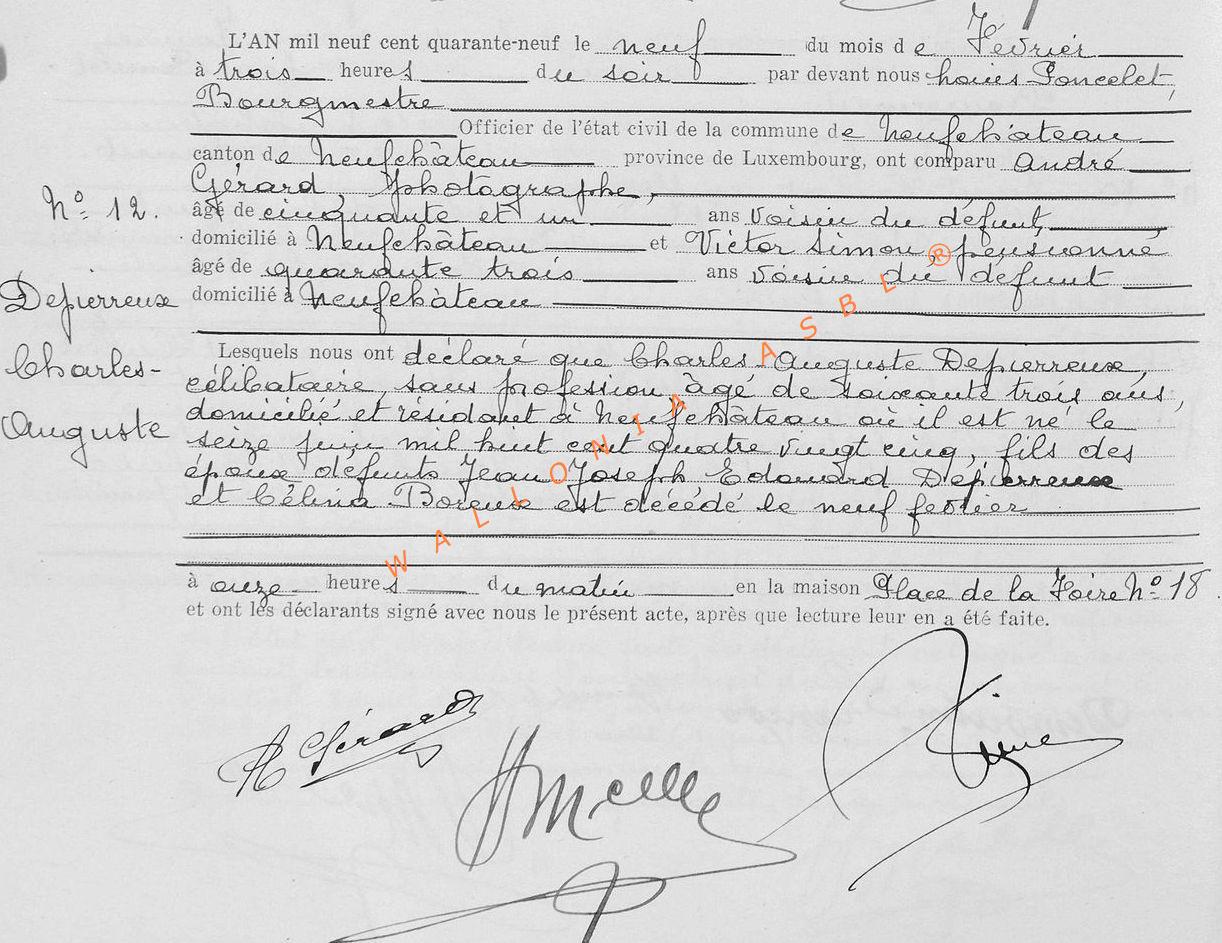 L'AN mil neuf cent quarante-neuf le neuf du mois de Février
à trois heures du soir par devant nous Louis Poncelet,
Bourgmestre
Officier de l'état civil de la commune de Neufchâteau
canton de Neufchâteau province de Luxembourg, ont comparu André
Gérard, photographe,
N° 12.
âgé de cinquante et un ans voisin du défunt,
domicilié à Neufchâteau et Victor Simon, pensionné
âgé de quarante trois ans voisin du défunt
domicilié à Neufchâteau
Depierreux
Charles-
Auguste
Lesquels nous ont déclaré que Charles-Auguste Depierreux,
célibataire, sans profession âgé de soixante trois ans,
domicilié et résidant à Neufchâteau où il est né le
seize juin mil huit cent quatre vingt cinq, fils des
époux défunts Jean Joseph Edouard Depierreux
et Célina Boreux est décédé le neuf fevrier
à onze heures du matin en la maison Place de la Foire N° 18
et ont les déclarants signé avec nous le présent acte, après que lecture leur en a été faite.
A Gérard
WALLONIA ASBL ®